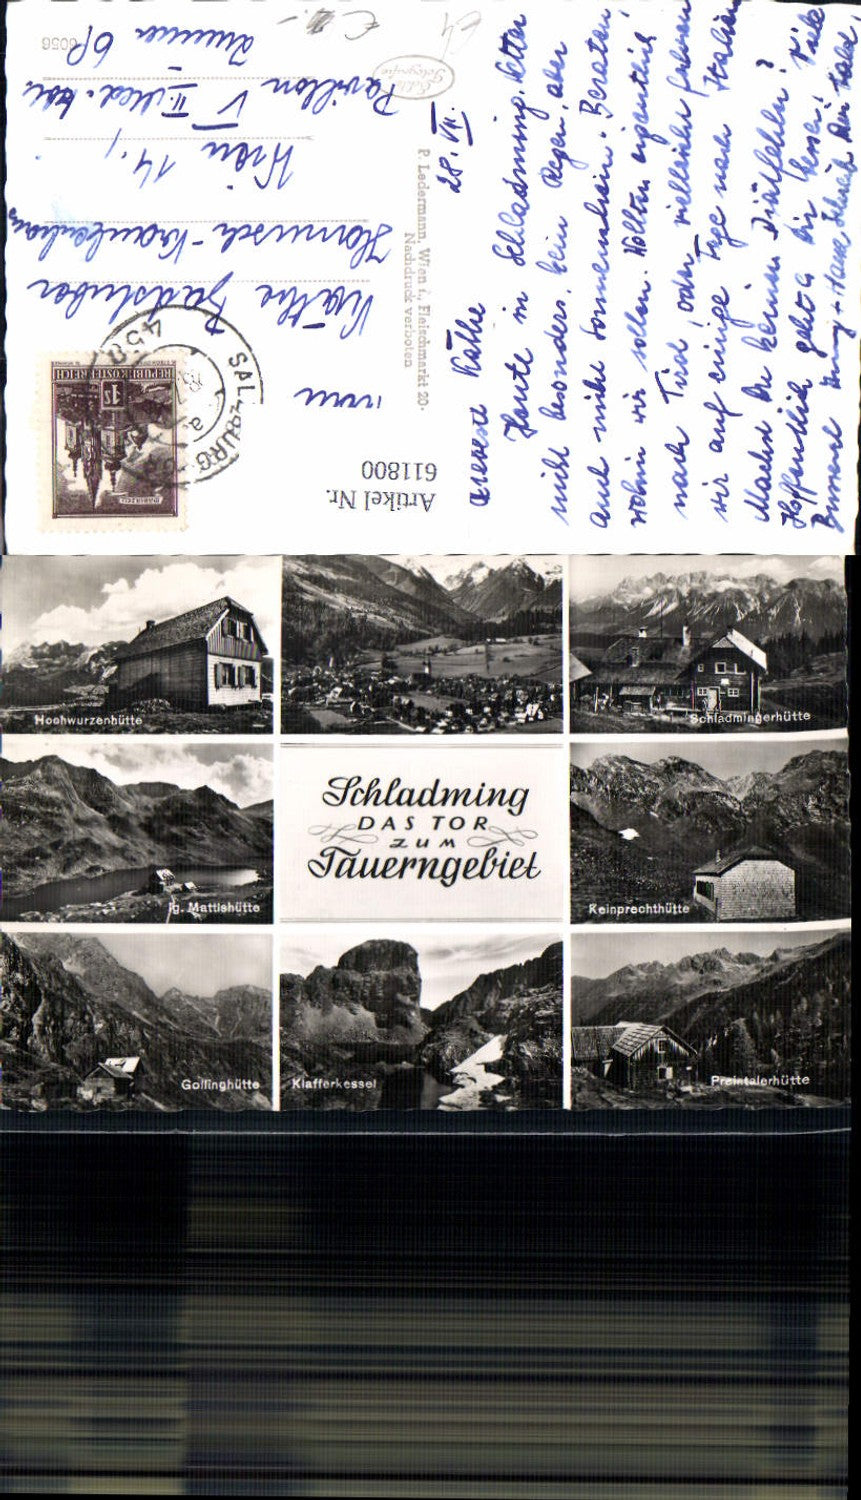 28. VII.
Liebste Käthe
Heute in Schladming. Wetter
nicht besonders. kein Regen, aber
auch nicht Sonnenschein. Beraten,
wohin wir sollen. Wollten eigentlich
nach Tirol, oder vielleicht fahren
wir auf einige Tage nach Italien
Machst Du keinen Diätfehler?
Hoffentlich geht's Dir besser. Viele
Artikel Nr.
611800
P. Ledermann, Wien I., Fleischmarkt 20.
Nachdruck verboten
Echte
Fotografie
REPUBLIK ÖSTERREICH
1S
MARIAZELL
SALZBURG
Käthe
Hanusch-Krankenhaus
Wien 14.,
Pavillon V II Med. Abt.
Zimmer 68
6056
Hochwurzenhütte
Schladmingerhütte
Schladming
DAS TOR
ZUM
Tauerngebiet
Ig. Mattishütte
Keinprechthütte
Gollinghütte
Klafferkessel
Preintalerhütte